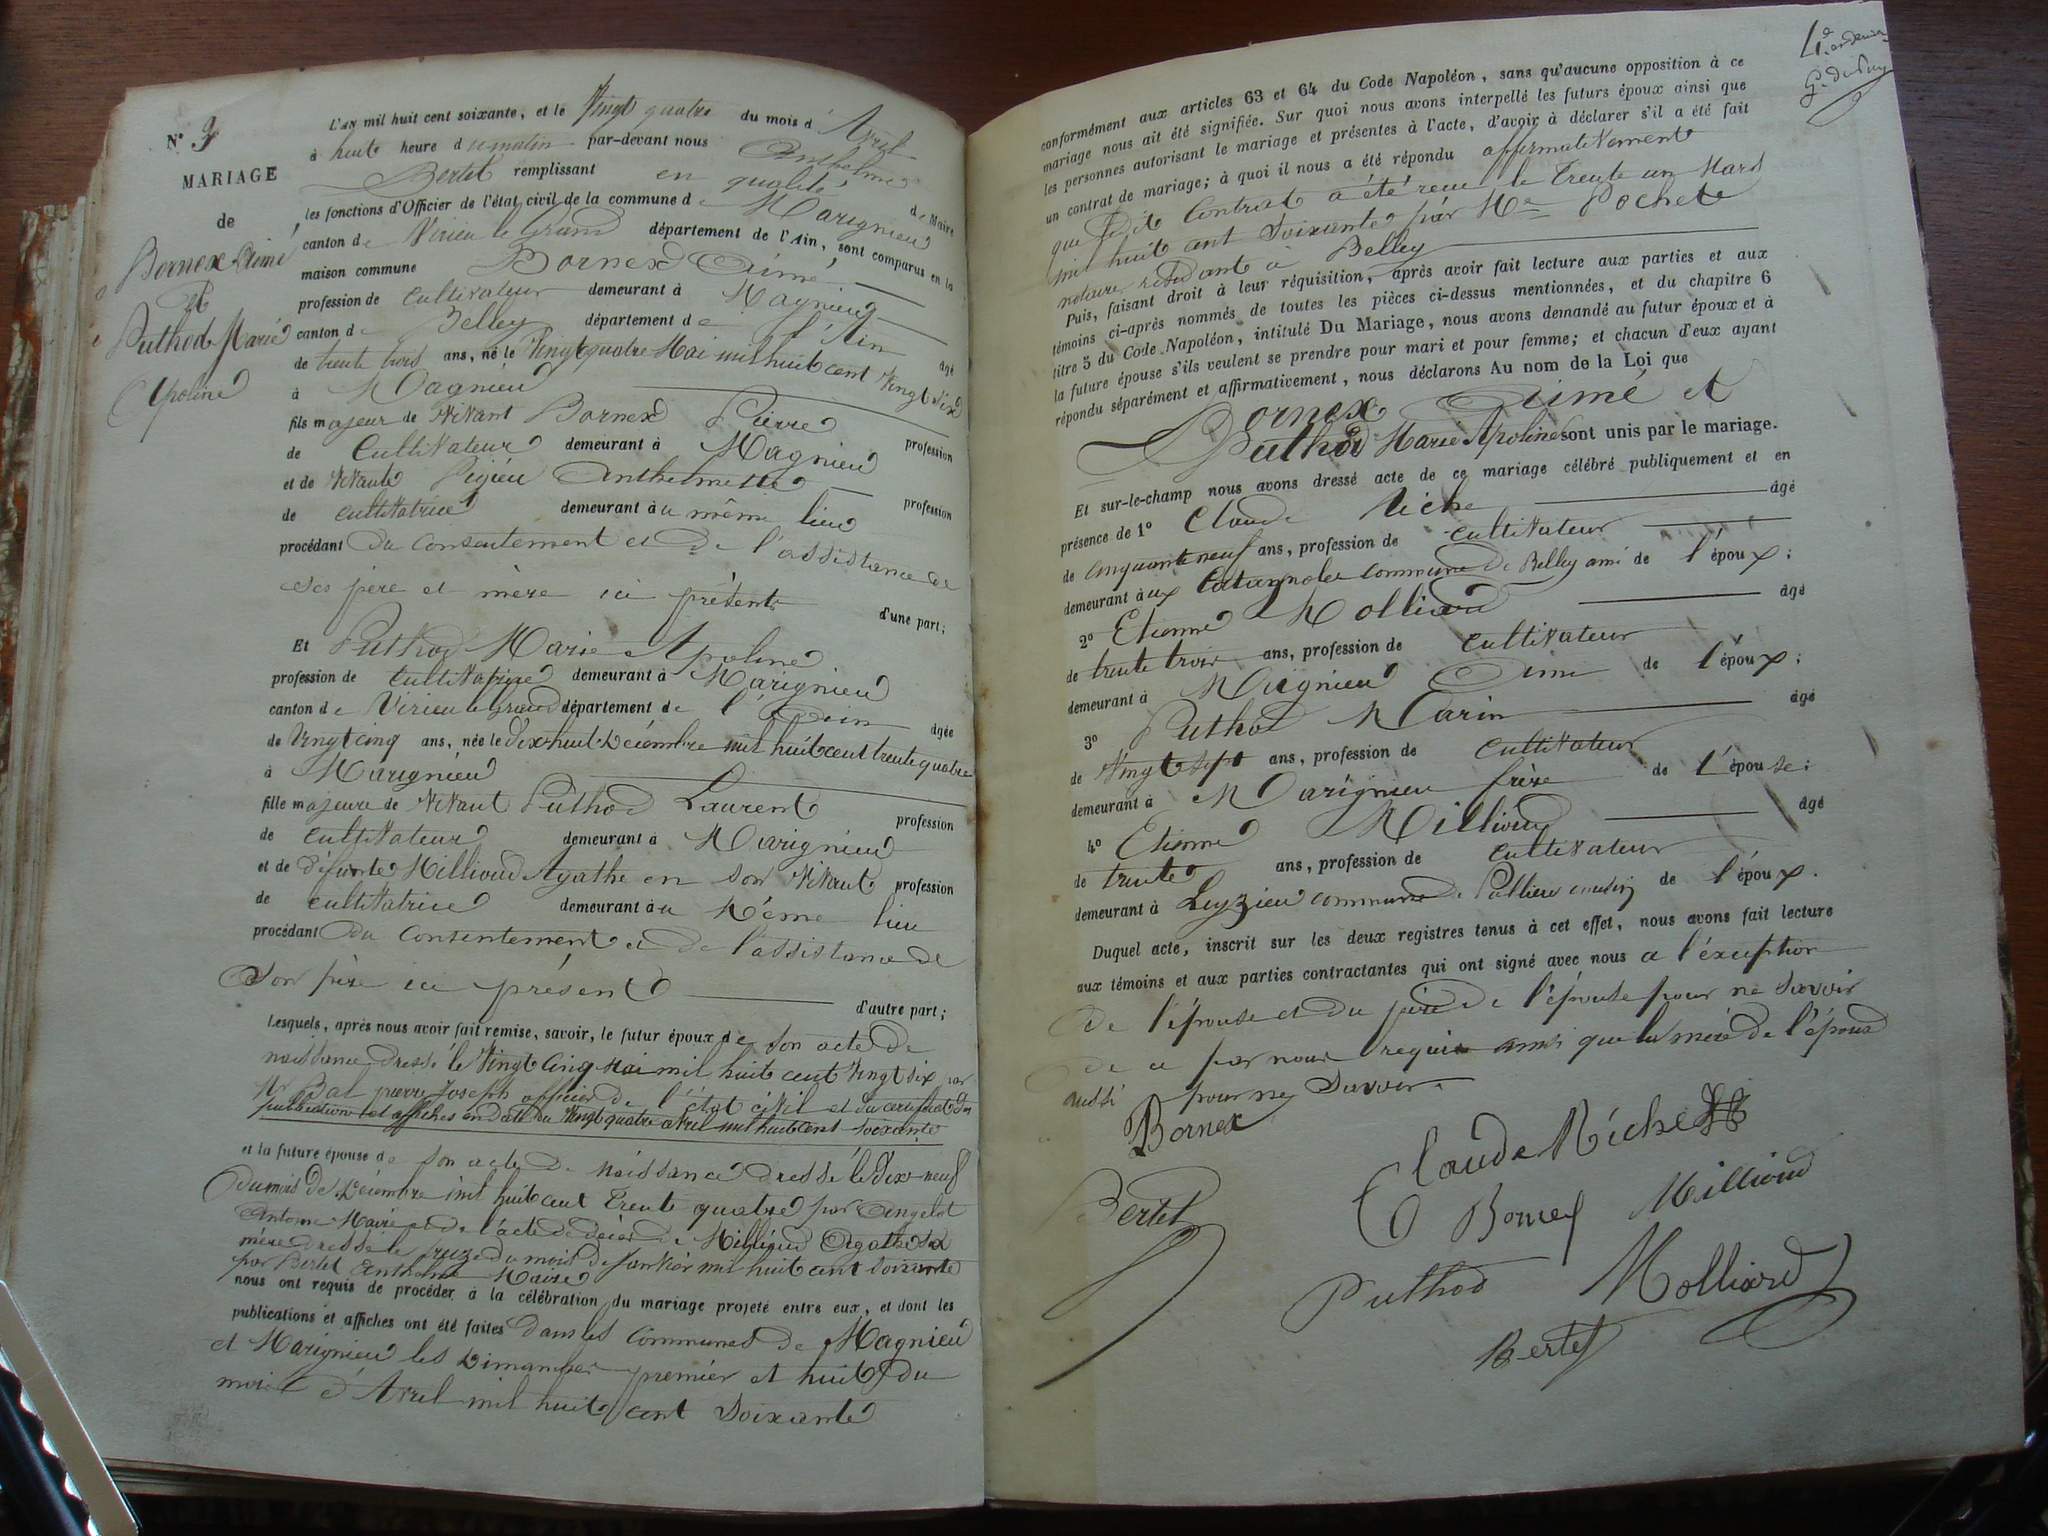 N° 3
MARIAGE
de
Bornex Aimé
et
Puthod Marie
Apoline
L'AN mil huit cent soixante, et le Vingt quatre du mois d'Avril
à huit heure du matin par-devant nous Anthelme
Bertet remplissant en qualité de Maire
les fonctions d'Officier de l'état civil de la commune de Marignieu
canton de Virieu le Grand département de l'Ain, sont comparus en la
maison commune Bornex Aimé
profession de Cultivateur demeurant à Magnieu
canton de Belley département de l'Ain âgé
de trente trois ans, né le Vingt quatre Mai mil huit cent Vingt Six
à Magnieu
fils majeur de Vivant Bornex Pierre profession
de Cultivateur demeurant à Magnieu
et de Vivante Anthelmette profession
de cultivatrice demeurant au même lieu
procédant du consentement et de l'assistance de
ses père et mère ici présents d'une part;
Et Puthod Marie Apoline
profession de Cultivatrice demeurant à Marignieu
canton de Virieu le Grand département de l'Ain âgée
de Vingt cinq ans, née le Dix huit Décembre mil huit cent trente quatre
à Marignieu
fille majeure de Vivant Puthod Laurent profession
de cultivateur demeurant à Marignieu
et de Défunte Millioud Agathe en son Vivant profession
de cultivatrice demeurant au Même lieu
procédant du Consentement et de l'assistance de
son père ici présent d'autre part;
Lesquels, après nous avoir fait remise, savoir, le futur époux de son acte de
naissance dressé le Vingt Cinq Mai mil huit cent Vingt Six par
Mr Bal pierre Joseph officier de l'état civil et du certificat de
publication et affiches en date du Vingt quatre avril mil huit cent soixante
et la future épouse de son acte de naissance dressé le Dix neuf
du mois de Décembre mil huit cent Trente quatre par Angelot
Antoine Maire et de l'acte de décès de Millioud Agathe sa
mère dressé le treize du mois de Janvier mil huit cent soixante
par Bertet Anthelme Maire
nous ont requis de procéder à la célébration du mariage projeté entre eux, et dont les
publications et affiches ont été faites dans les Communes de Magnieu
et Marignieu les Dimanches premier et huit du
mois d'Avril mil huit cent Soixante
conformément aux articles 63 et 64 du Code Napoléon, sans qu'aucune opposition à ce
mariage nous ait été signifiée. Sur quoi nous avons interpellé les futurs époux ainsi que
les personnes autorisant le mariage et présentes à l'acte, d'avoir à déclarer s'il a été fait
un contrat de mariage; à quoi il nous a été répondu affirmativement
que ledit Contrat a été reçu le Trente un Mars
mil huit cent Soixante par Me Pochet
notaire résidant à Belley
Puis, faisant droit à leur réquisition, après avoir fait lecture aux parties et aux
témoins ci-après nommés de toutes les pièces ci-dessus mentionnées, et du chapitre 6
titre 5 du Code Napoléon, intitulé Du Mariage, nous avons demandé au futur époux et à
la future épouse s'ils veulent se prendre pour mari et pour femme; et chacun d'eux ayant
répondu séparément et affirmativement, nous déclarons Au nom de la Loi que
Bornex Aimé et
Puthod Marie Apoline sont unis par le mariage.
Et sur-le-champ nous avons dressé acte de ce mariage célébré publiquement et en
présence de 1° Claude Riche âgé
de cinquante neuf ans, profession de cultivateur
demeurant aux commune de Belley ami de l'époux;
2° Etienne Molliard âgé
de trente trois ans, profession de cultivateur
demeurant à Magnieu Ami de l'époux;
3° Puthod Marin âgé
de Vingt sept ans, profession de Cultivateur
demeurant à Marignieu frère de l'épouse;
4° Etienne Millioud âgé
de trente ans, profession de cultivateur
demeurant à Leyzieu commune de cousin de l'époux.
Duquel acte, inscrit sur les deux registres tenus à cet effet, nous avons fait lecture
aux témoins et aux parties contractantes qui ont signé avec nous a l'exception
de l'épouse et du père de l'épouse pour ne savoir
de ce par nous requis ainsi que la mère de l'époux
aussi pour ne Savoir.
Bornex
Claude Riche
Bertet
Bornex
Millioud
Puthod
Molliard
Bertet